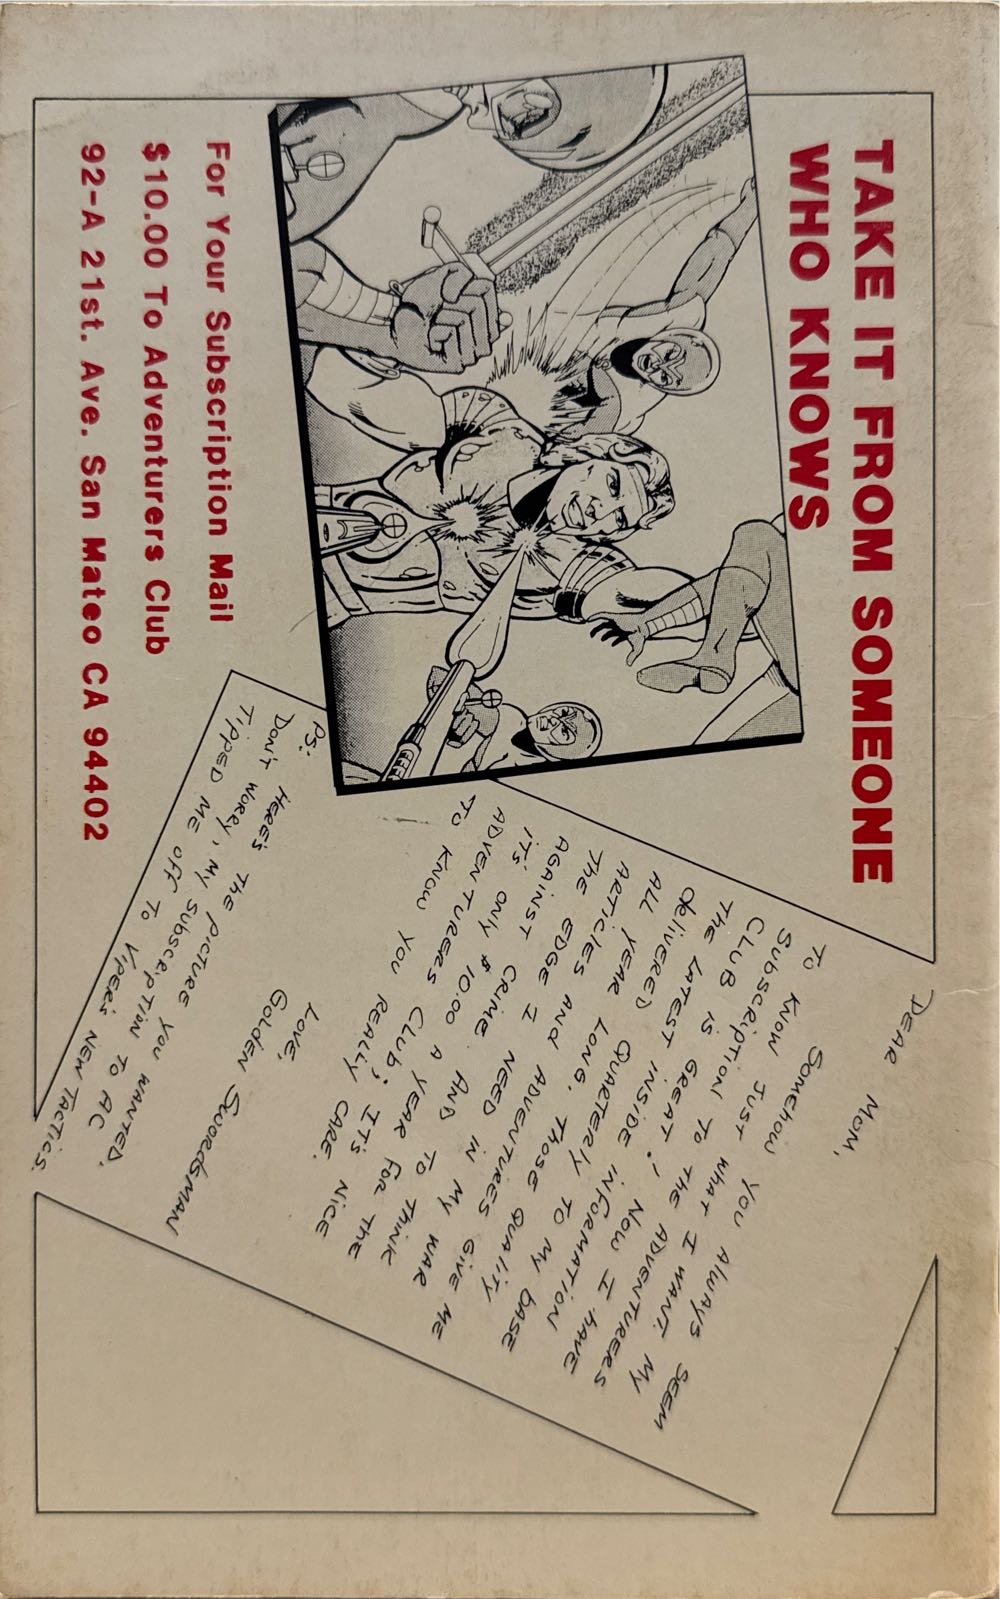 TAKE IT FROM SOMEONE
WHO KNOWS
DEAR MOM,
SOMEHOW YOU ALWAYS SEEM
TO KNOW JUST WHAT I WANT. MY
SUBSCRIPTION TO THE ADVENTURERS
CLUB IS GREAT! NOW I HAVE
THE LATEST INSIDE INFORMATION
delivered QUARTERLY TO MY BASE
ALL YEAR LONG. THOSE QUALITY
ARTICLES AND ADVENTURES GIVE ME
THE EDGE I NEED IN MY WAR
AGAINST CRIME. AND TO THINK
IT'S ONLY $10.00 A YEAR FOR THE
ADVENTURERS CLUB! IT'S NICE
TO KNOW YOU REALLY CARE.
LOVE,
GOLDEN SWORDSMAN
PS: HERE'S THE PICTURE YOU WANTED.
DON'T WORRY, MY SUBSCRIPTION TO AC
TIPPED ME OFF TO VIPER'S NEW TACTICS.
For Your Subscription Mail
$10.00 To Adventurers Club
92-A 21st. Ave. San Mateo CA 94402